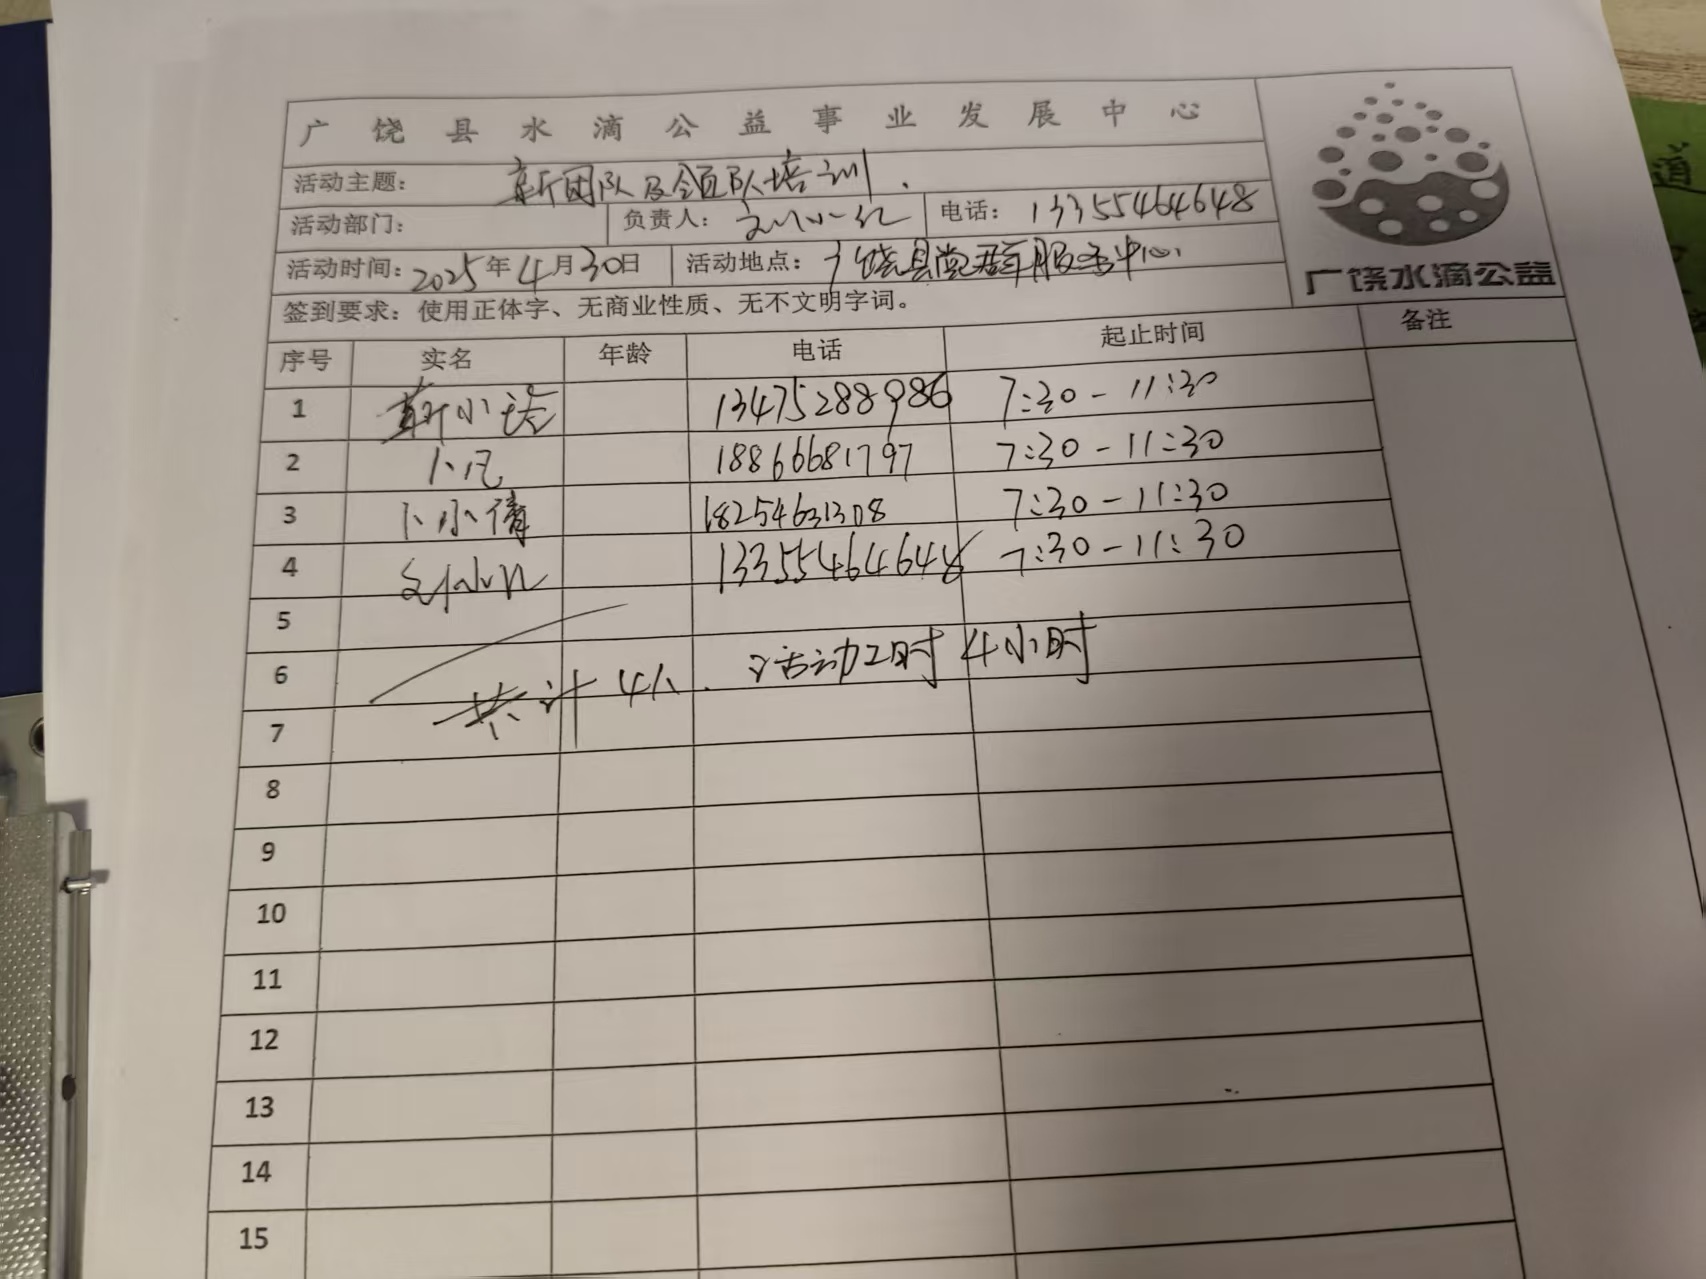 广饶县水滴公益事业发展中心
活动主题： 新团队及领队培训.
活动部门： 负责人： 刘小红 电话： 13355464648
活动时间：2025年4月30日 活动地点： 广饶县党群服务中心
签到要求：使用正体字、无商业性质、无不文明字词。
广饶水滴公益
序号 实名 年龄 电话 起止时间 备注
1 靳小 13475288986 7:30-11:30
2 卜凡 18866681797 7:30-11:30
3 卜小倩 18254631308 7:30-11:30
4 刘小红 13355464648 7:30-11:30
5
6 共计4人. 活动工时4小时
7
8
9
10
11
12
13
14
15
道